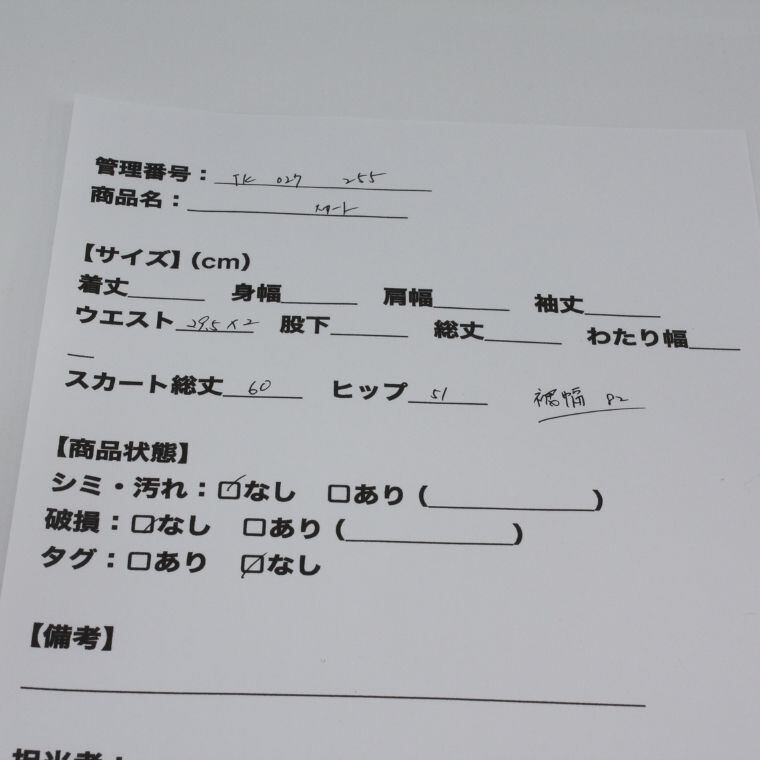 管理番号：TK 027 255
商品名：スカート
【サイズ】(cm)
着丈______ 身幅______ 肩幅______ 袖丈______
ウエスト 29.5×2 股下______ 総丈______ わたり幅____
__
スカート総丈 60 ヒップ 51 裾幅 82
【商品状態】
シミ・汚れ：☑なし □あり (______________)
破損：☑なし □あり (______________)
タグ：□あり ☑なし
【備考】
担当者：